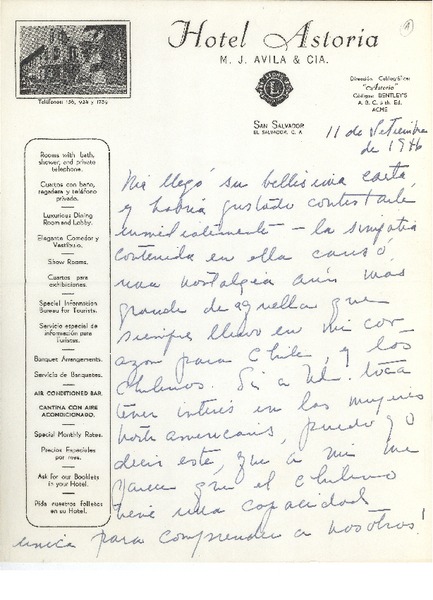 Hotel Astoria
M. J. AVILA & CIA.
Teléfonos 136, 934 y 1730
Dirección Cablegráfica:
"Astoria"
Códigos: BENTLEY'S
A. B. C. 5th. Ed.
ACME
SAN SALVADOR
EL SALVADOR, C. A.
11 de setiembre
de 1946
Rooms with bath,
shower, and private
telephone.
Cuartos con baño,
regadera y teléfono
privado.
Luxurious Dining
Room and Lobby.
Elegante Comedor y
Vestíbulo.
Show Rooms.
Cuartos para
exhibiciones.
Special Information
Bureau for Tourists.
Servicio especial de
información para
Turistas.
Banquet Arrangements.
Servicio de Banquetes.
AIR CONDITIONED BAR.
CANTINA CON AIRE
ACONDICIONADO.
Special Monthly Rates.
Precios Especiales
por mes.
Ask for our Booklets
in your Hotel.
Pida nuestros folletos
en su Hotel.
Me llegó su bellísima carta
y habría gustado contestarle
inmediatamente — la simpatía
contenida en ella causó
una nostalgia aún mas
grande de aquella que
siempre llevo en mi cor-
azon para Chile, y los
chilenos. Si a Ud. toca
tener interés en las mujeres
norte americanas, puedo yo
decir este, que a mi me
parece que el chileno
tiene una capacidad
unica para comprender a nosotros!